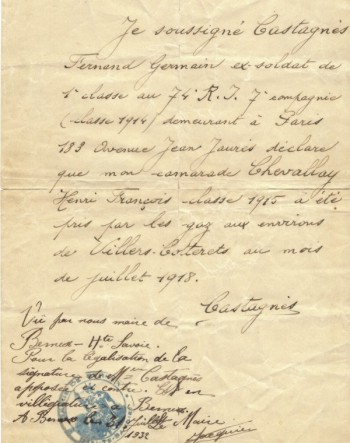 Je soussigné Castagnès
Fernend Germain ex-soldat de
1e classe au 74e R. I. 7e compagnie
(classe 1914) demeurant à Paris
199 Avenue Jean Jaurès déclare
que mon camarade Chevallay
Henri François classe 1915 à été
pris par les gaz aux environs
de Villers-Cotterets au mois
de juillet 1918.
Castagnès
Vu par nous maire de
Bernex - Hte Savoie.
Pour la légalisation de la
signature de Mr Castagnès
apposée ci contre. Est en
villégiature à Bernex.
A Bernex le 31 Maire
1932